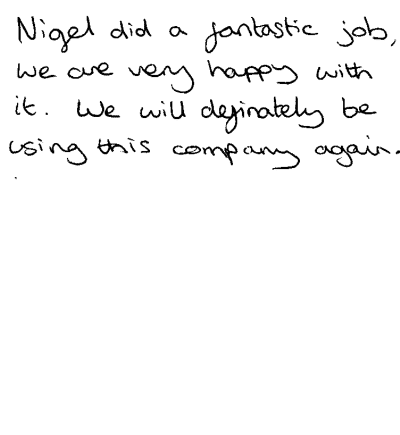 Nigel did a fantastic job,
we are very happy with
it. We will definately be
using this company again.